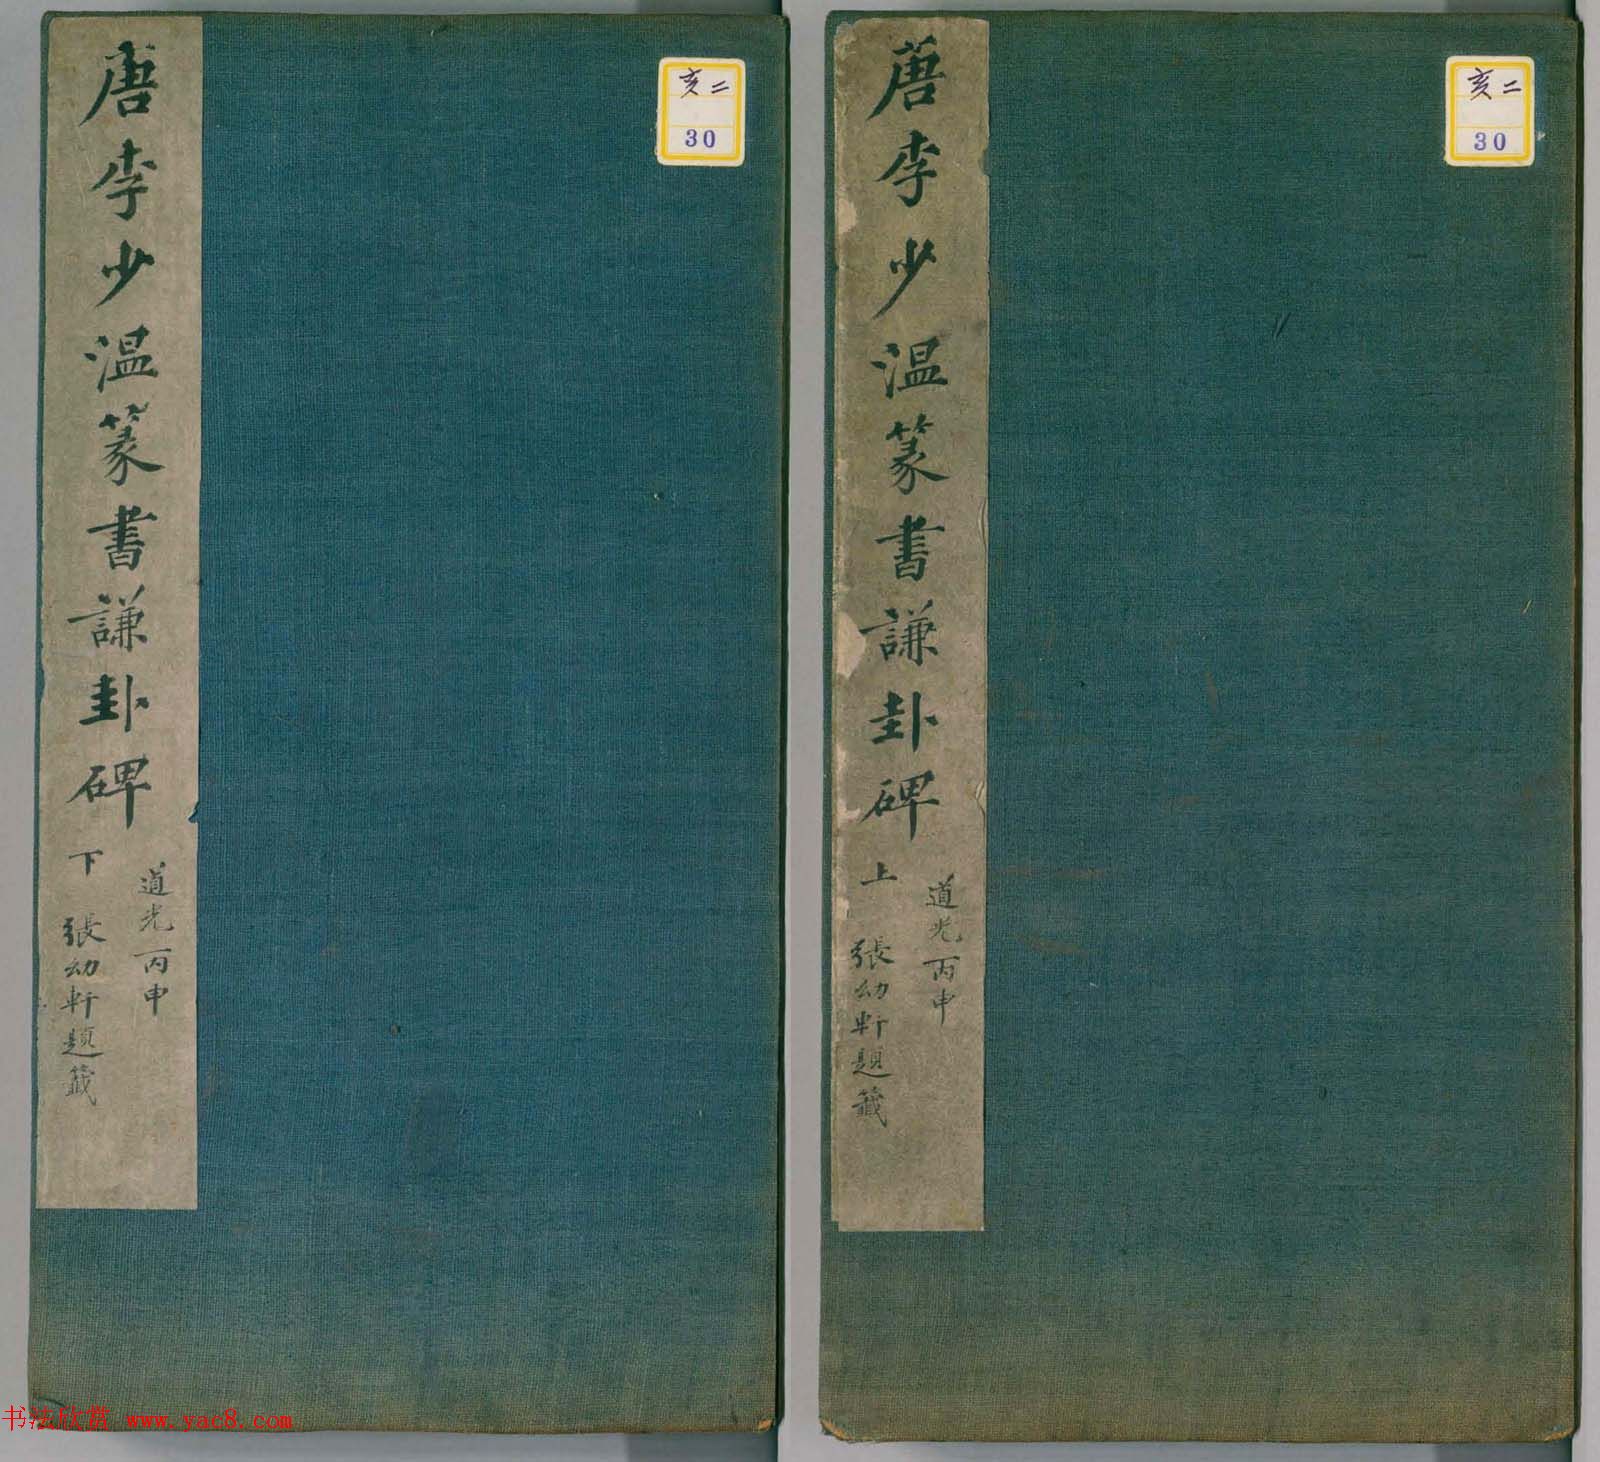 唐李少温篆書謙卦碑 上
道光丙申
張幼軒題籤
亥二
30
唐李少温篆書謙卦碑 下
道光丙申
張幼軒題籤
亥二
30
书法欣赏 www.yac8.com